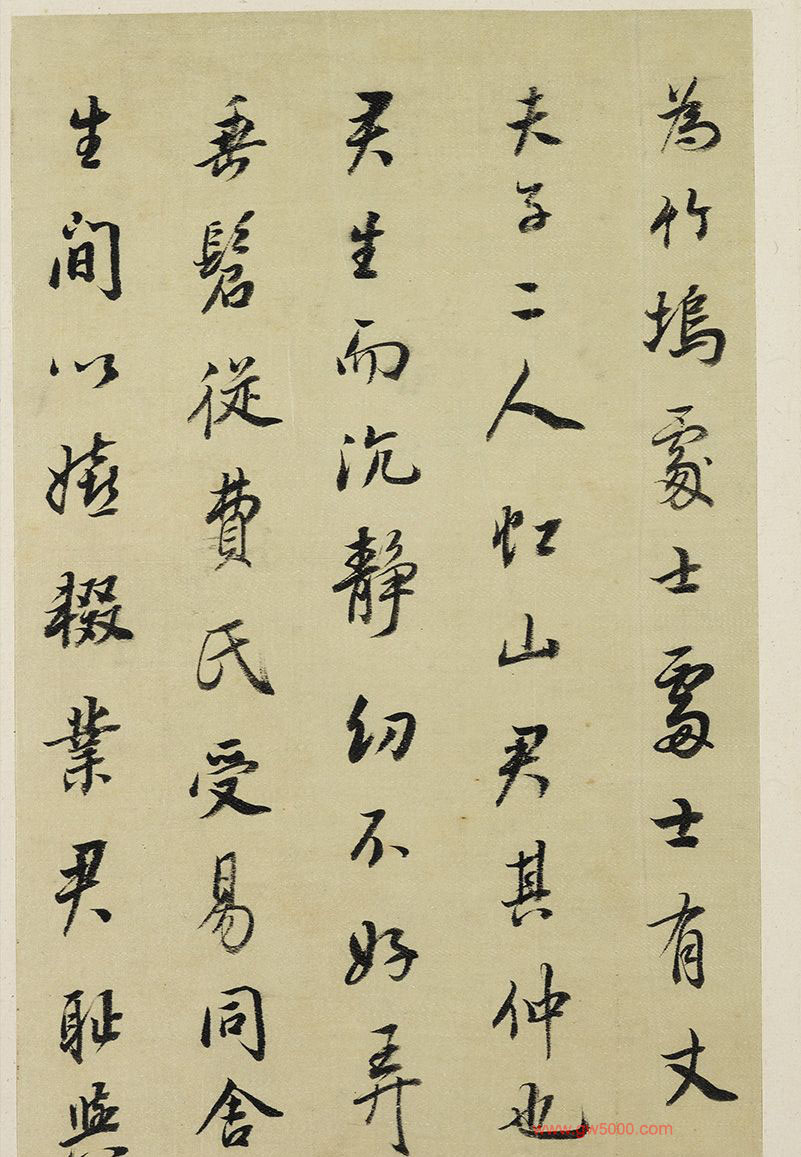 為竹塢處士處士有丈
夫子二人虹山君其仲也
君生而沉静幼不好弄
垂髫從費氏受易同舍
生間以嬉輟業君恥與
www.gw5000.com